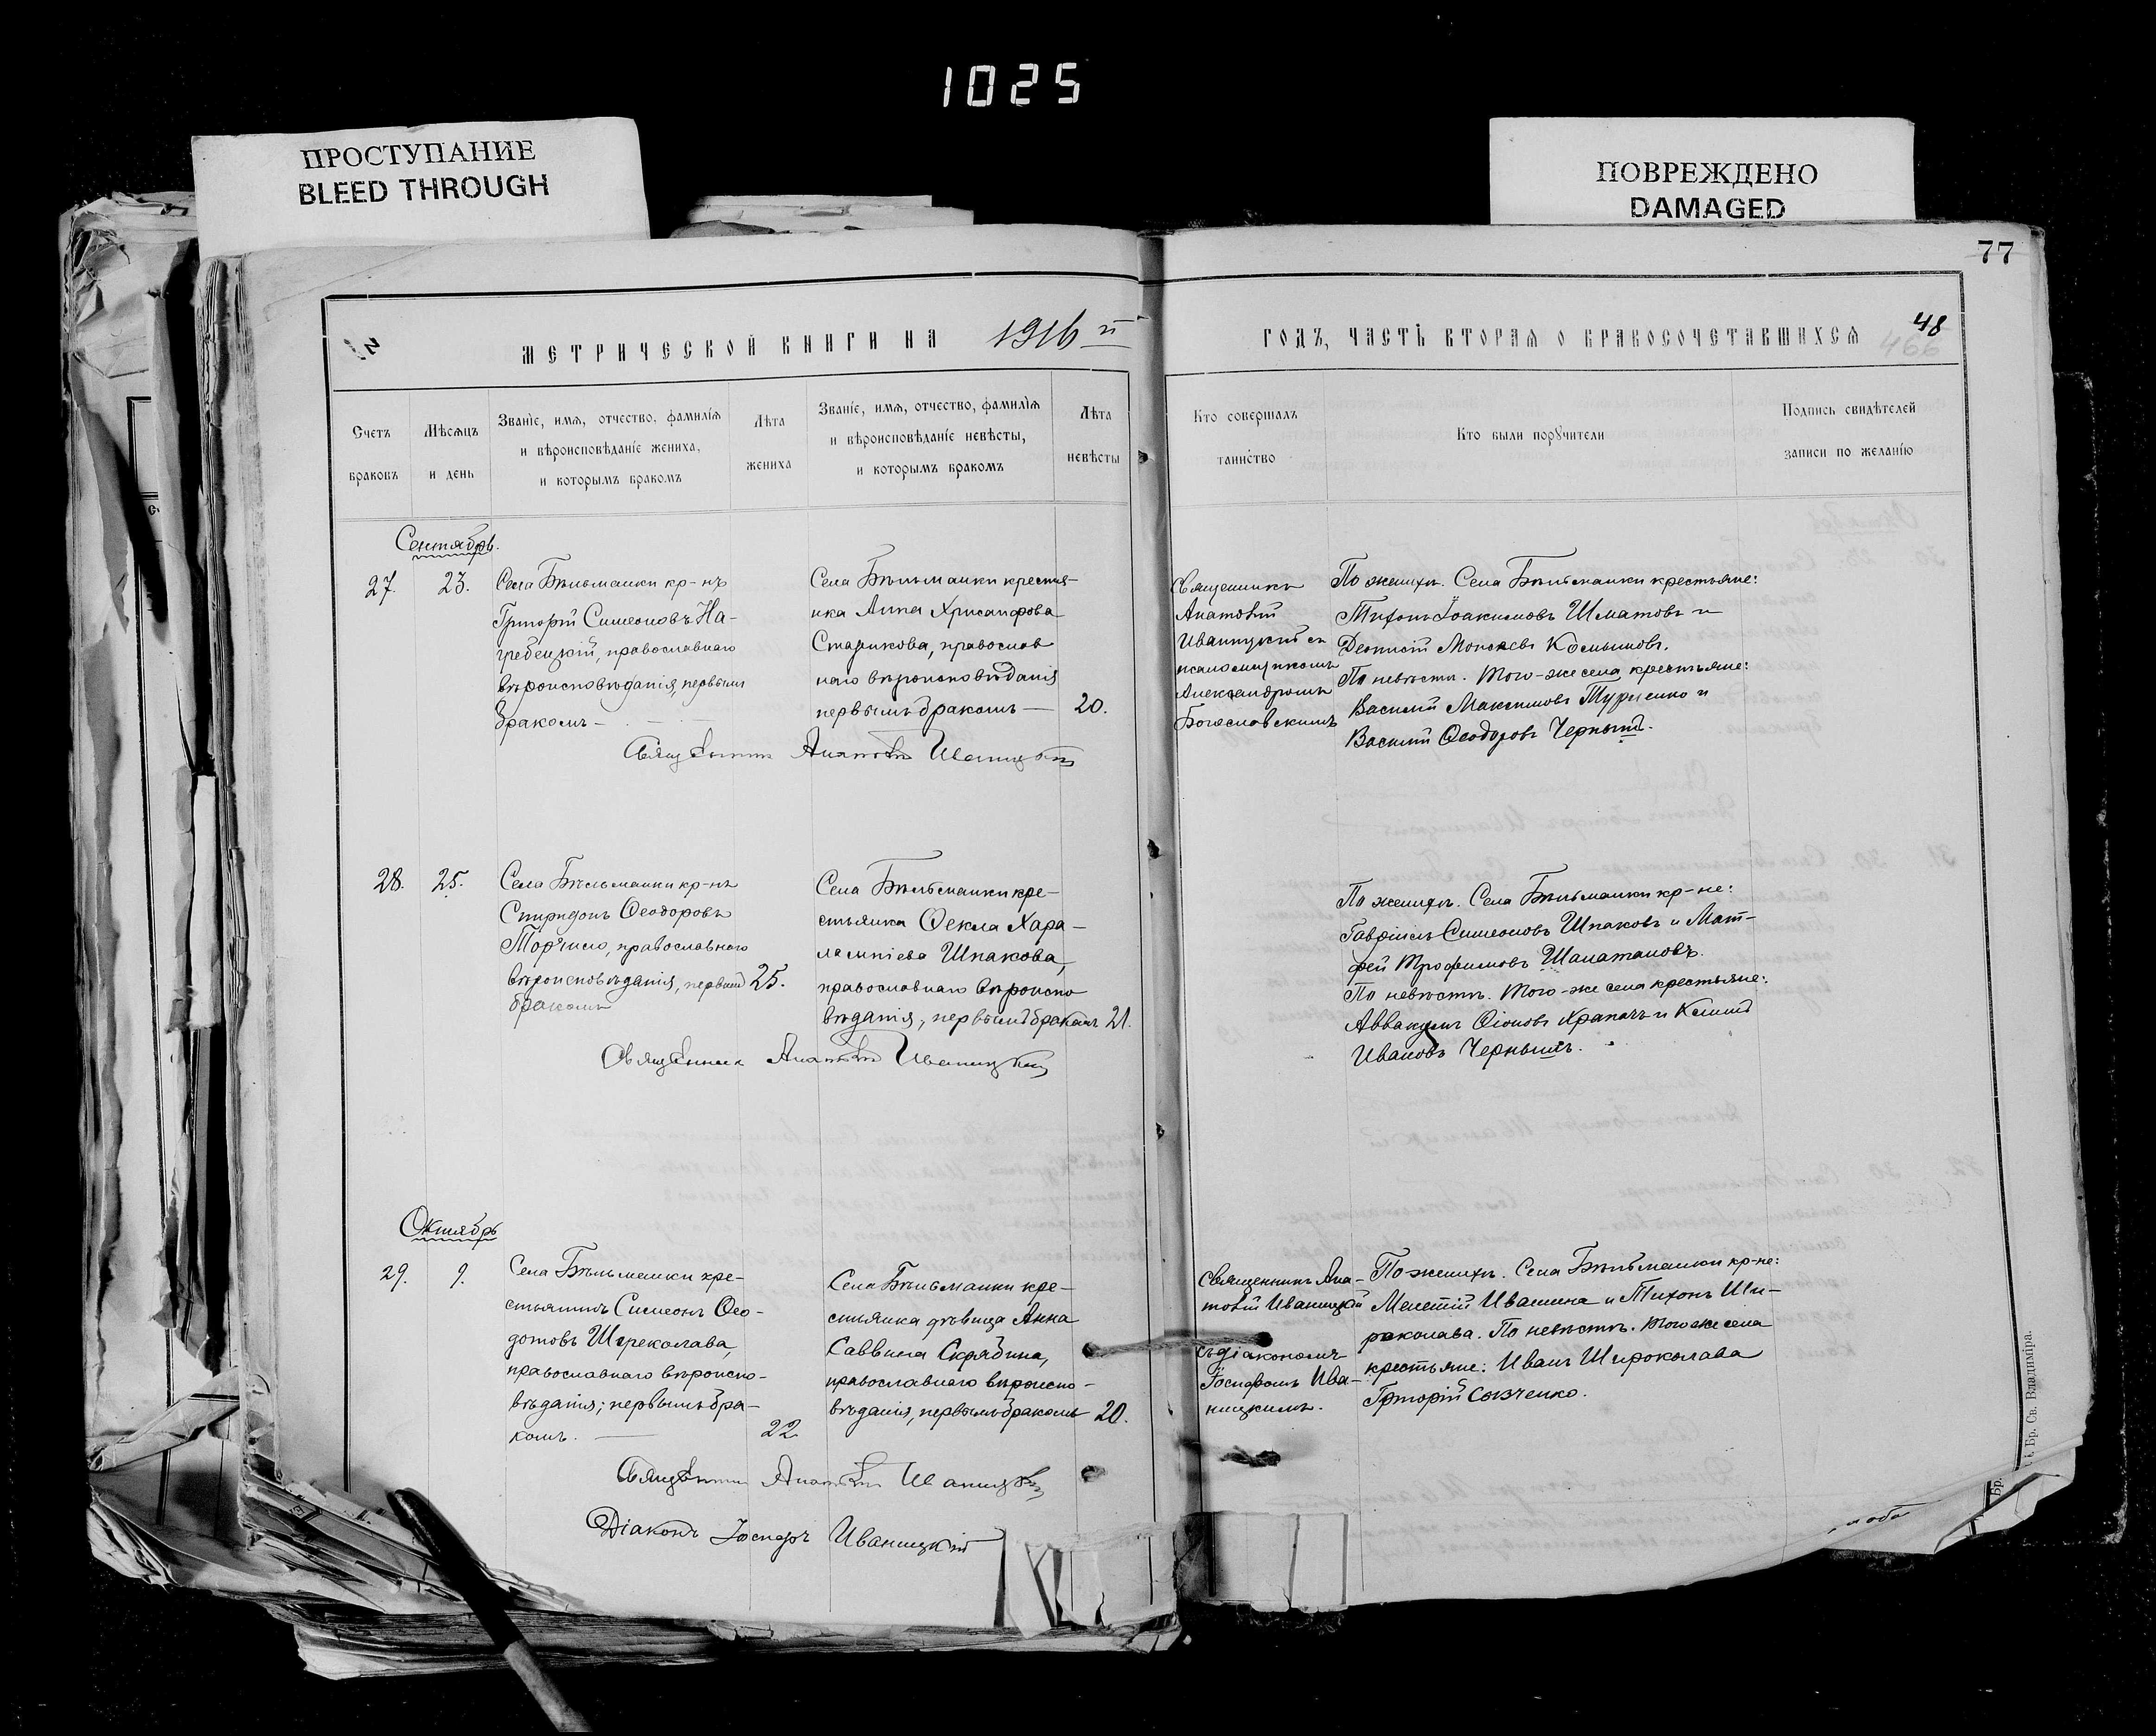 1025
ПРОСТУПАНИЕ
BLEED THROUGH
ПОВРЕЖДЕНО
DAMAGED
77
МЕТРИЧЕСКОЙ КНИГИ НА 1916 й
ГОДЪ, ЧАСТЬ ВТОРАЯ О БРАКОСОЧЕТАВШИХСЯ
48
466
Счетъ
браковъ
Мѣсяцъ
и день
Званіе, имя, отчество, фамилія
и вѣроисповѣданіе жениха,
и которымъ бракомъ
Лѣта
жениха
Званіе, имя, отчество, фамилія
и вѣроисповѣданіе невѣсты,
и которымъ бракомъ
Лѣта
невѣсты
Кто совершалъ
таинство
Кто были поручители
Подпись свидѣтелей
записи по желанію
Сентябрь.
27.
23.
Села Бѣльманки кр-нъ
Григорій Симеоновъ На-
гребецкій, православнаго
вѣроисповѣданія, первымъ
бракомъ —
Села Бѣльманки крестья-
нка Анна Хрисанфова
Старикова, православ
наго вѣроисповѣданія
первымъ бракомъ —
20.
Священникъ
Анатолій
Иваницкій съ
псаломщикомъ
Александромъ
Богословскимъ
По женихѣ. Села Бѣльманки крестьяне:
Тихонъ Іоакимовъ Шматовъ и
Діонисій Моисеевъ
По невѣстѣ. Того-же села крестьяне:
Василій Максимовъ и
Василій Ѳеодоровъ Чернышъ.
Священникъ Анатолій Иваницкій
28.
25.
Села Бѣльманки кр-нъ
Спиридонъ Ѳеодоровъ
Торчило, православнаго
вѣроисповѣданія, первымъ
бракомъ
25.
Села Бѣльманки кре-
стьянка Ѳекла Хара-
лампіева Шпакова,
православнаго вѣроиспо
вѣданія, первымъ бракомъ
21.
По женихѣ. Села Бѣльманки кр-не:
Гавріилъ Симеоновъ Шпаковъ и Мат-
фей Трофимовъ Шаматановъ.
По невѣстѣ. Того-же села крестьяне:
Аввакумъ и
Ивановъ Чернышъ.
Священникъ Анатолій Иваницкій
Октябрь
29.
9.
Села Бѣльманки кре-
стьянинъ Симеонъ Ѳео-
дотовъ Ширеколава,
православнаго вѣроиспо-
вѣданія; первымъ бра-
комъ. —
22
Села Бѣльманки кре-
стьянка дѣвица Анна
Саввина Скрябина,
православнаго вѣроиспо-
вѣданія, первымъ бракомъ
20.
Священникъ Ана-
толій Иваницкій
съ діакономъ
Іосифомъ Ива-
ницкимъ.
По женихѣ. Села Бѣльманки кр-не:
Мелетій Ивашина и Тихонъ Ши-
роколава. По невѣстѣ. Того же села
крестьяне: Иванъ Широколава
Григорій
Священникъ Анатолій Иваницкій
Діаконъ Іосифъ Иваницкій
Бр. Св. Владиміра.